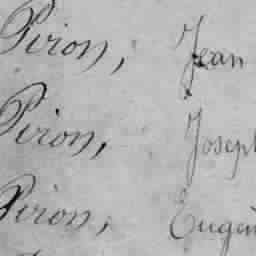 Piron, Jean
Piron, Joseph
Piron, Eugèn